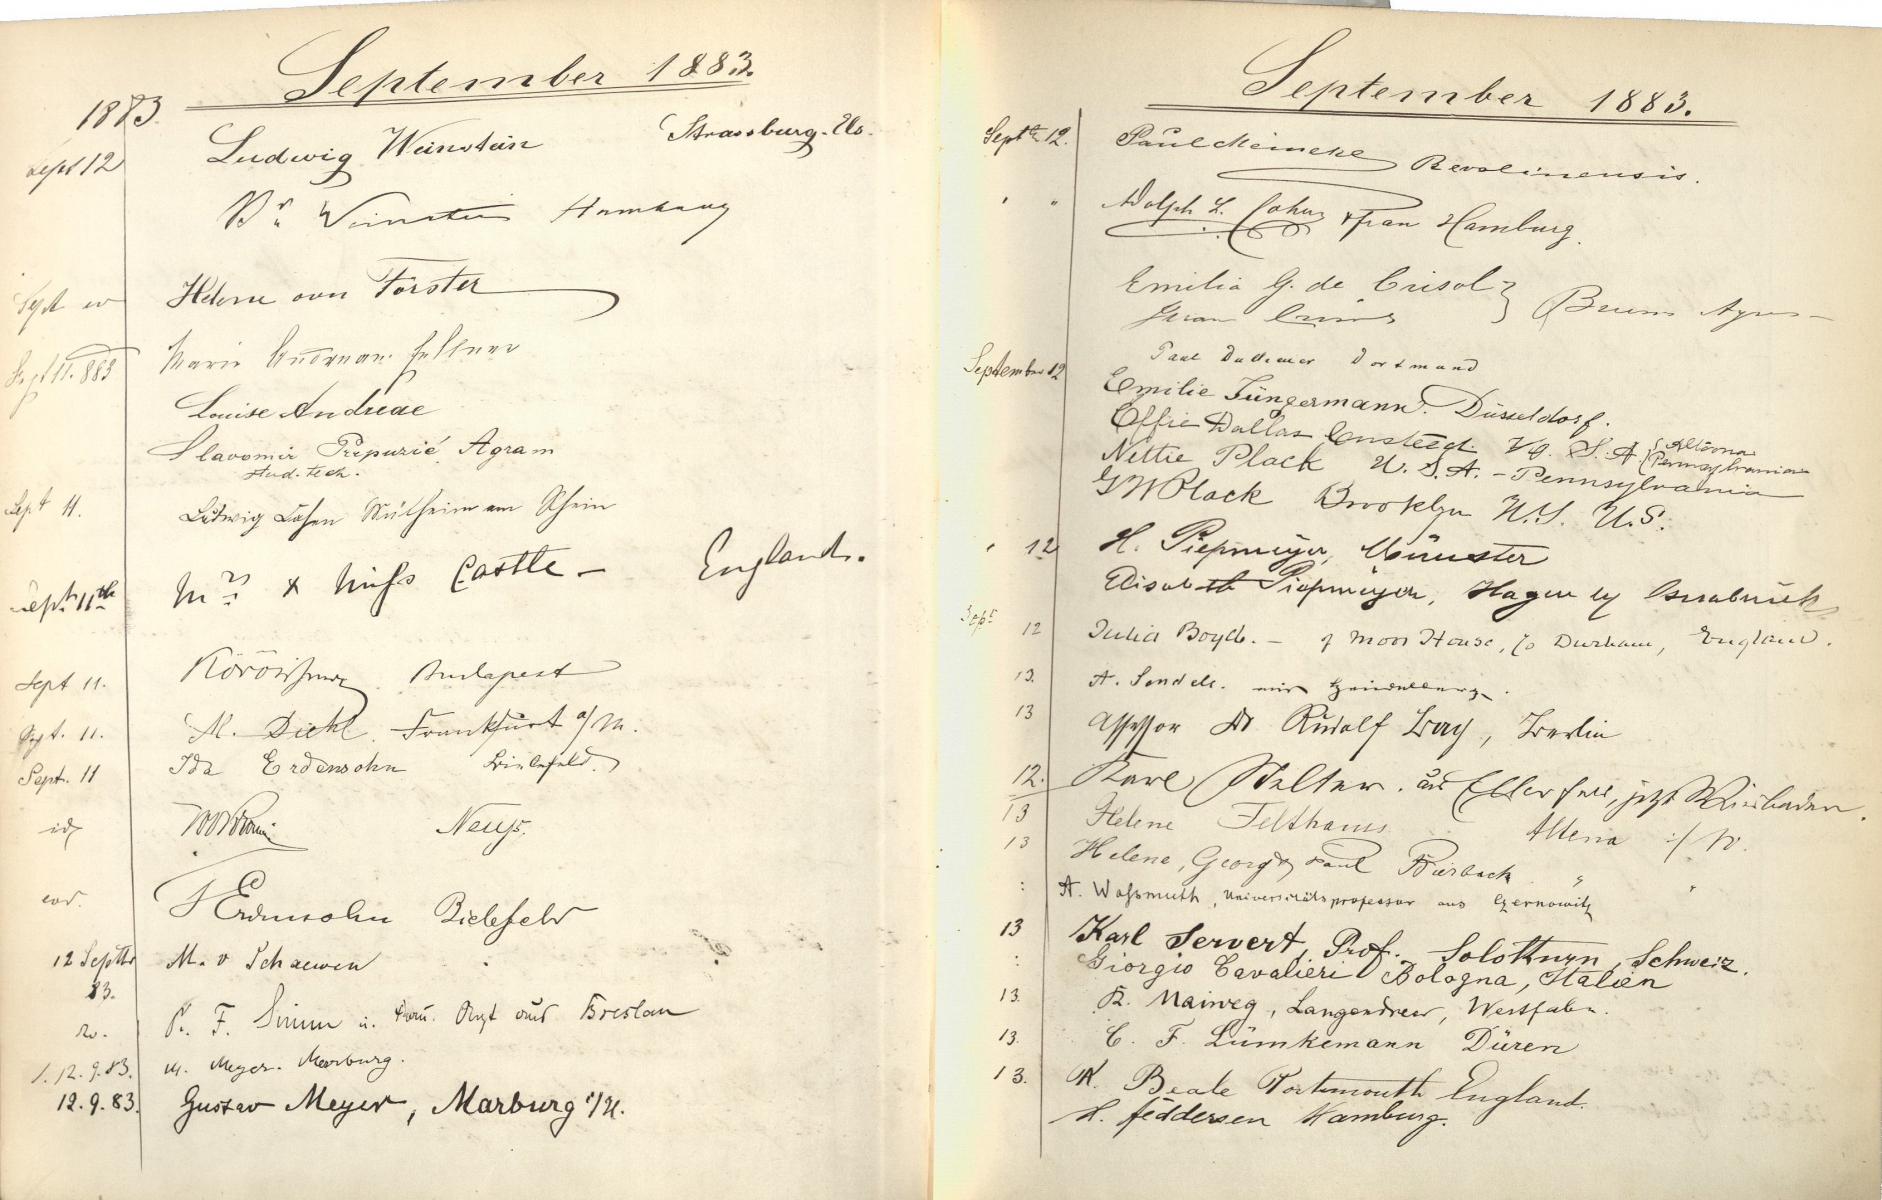 September 1883.
1883
Sept 12 Ludwig Weinstein Strassburg. Els.
Dr. Weinstein Hamburg
Sept Helene von Förster
Sept 11. 883 Marie
Louise Andreae
Slavomir Agram
stud. tech.
Sept 11. Ludwig Cohen Mülheim am Rhein
Sept. 11th Mrs & Miss Castle - England.
Sept 11. Budapest
Sept. 11. M. Diehl. Frankfurt a/M.
Sept. 11 Ida Erdensohn Bielefeld.
id Neuss.
eod. Erdensohn Bielefeld
12 Septbr 83. M. v Schaewen
F. Simm u. Frau. Arzt aus Breslau
1. 12. 9. 83. M. Meyer. Marburg.
12. 9. 83. Gustav Meyer, Marburg a/H.
September 1883.
Septbr 12. Paul Meineke Berolinensis.
" " Adolph L. Cohen & frau Hamburg.
Emilia G. de Crisol
Buenos Ayres
September 12 Paul Dortmund
Emilie Jüngermann. Düsseldorf.
Effie Dallas U. S. A. Altoona Pennsylvania
Nettie Plack U. S. A. - Pennsylvania
G W Plack Brooklyn N.Y. U.S.
" 12 H. Piepmeyer, Münster
Elisabeth Piepmeyer, Hagen by Osnabrück
Sept 12 Julia Boyd. - of Moor House, Co Durham, England.
13. A. Sendele. aus Heidelberg.
13 Assessor Dr Rudolf Berlin
12. Karl Stelter. aus Elberfeld, jetzt Wiesbaden.
13 Helene Felthaus Altena i/W.
13 Helene, Georg & Paul Bierbach " "
: A. Wassmuth, Universitätsprofessor aus Czernowitz
13 Karl Servert, Prof. Solothurn, Schweiz.
: Giorgio Cavalieri Bologna, Italien
13. R. Maiweg, Langendreer, Westfalen.
13. C. F. Lümkemann Düren
13. W. Beale Portsmouth England.
H. Feddersen Hamburg.